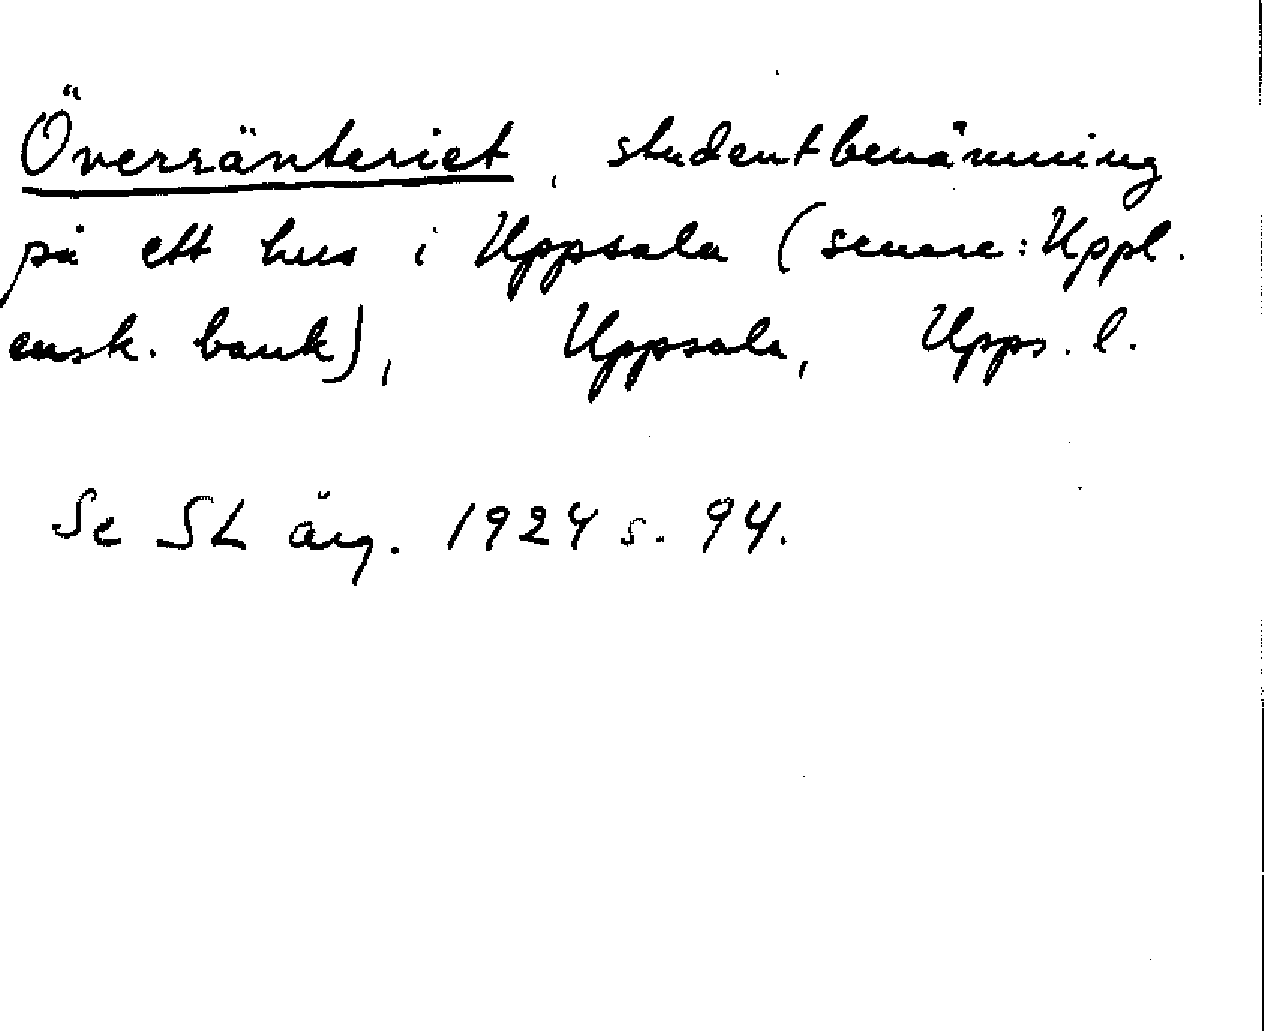 Överränteriet, studentbenämning
på ett hus i Uppsala (senare: Uppl.
ensk. bank), Uppsala, Upps. l.
Se SL årg. 1924 s. 94.